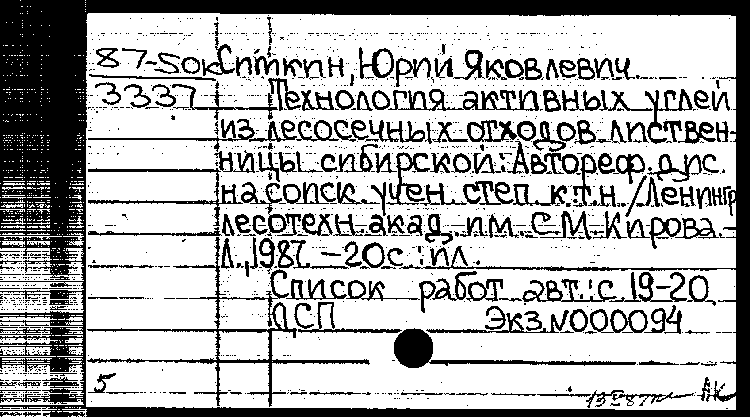 87-5ок Ситкин, Юрий Яковлевич
3337 Технология активных углей
из лесосечных отходов листвен-
ницы сибирской: Автореф. дис.
на соиск. учен. степ. к.т.н. / Ленингр.
лесотехн. акад. им. С.М. Кирова. –
Л., 1987. – 20 с.: ил.
Список работ авт.: с. 19-20
ДСП Экз. N000094.
5 АК